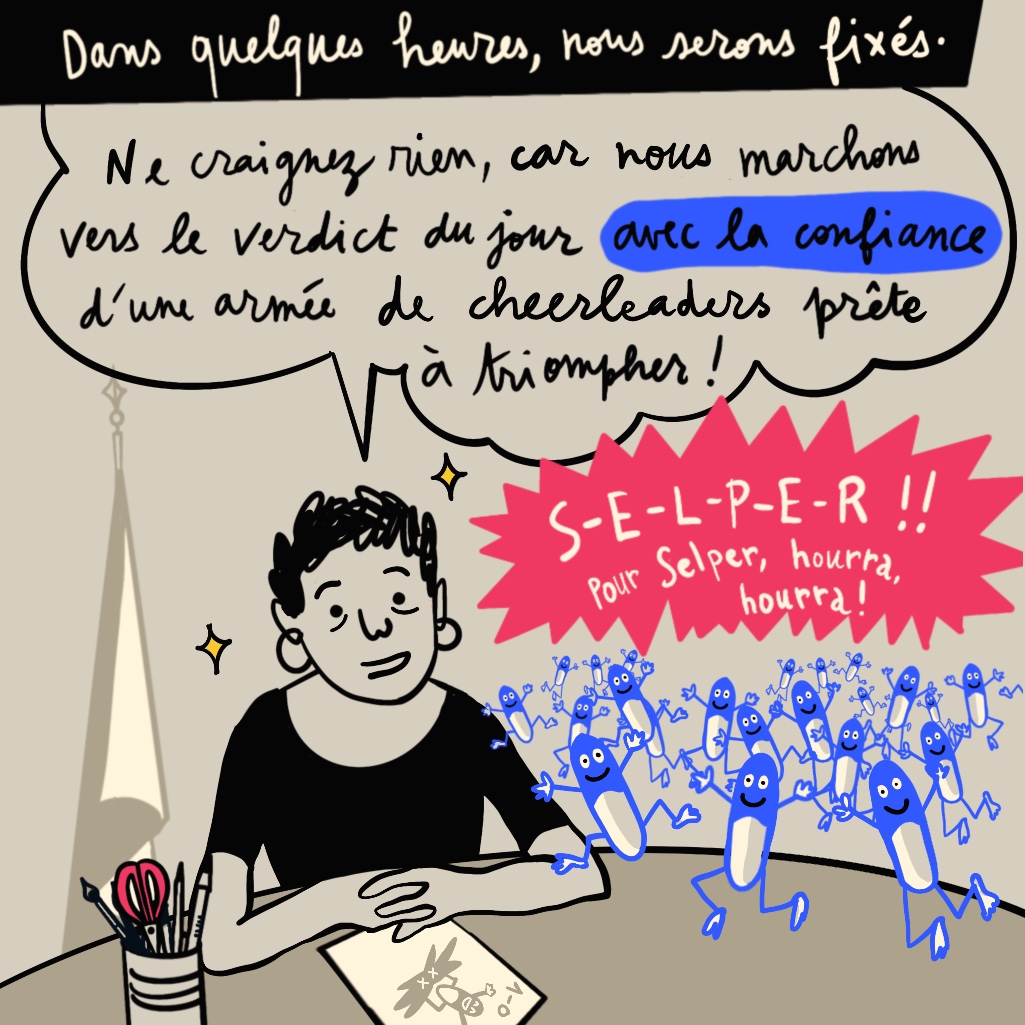 Dans quelques heures, nous serons fixés.
Ne craignez rien, car nous marchons
vers le verdict du jour avec la confiance
d'une armée de cheerleaders prête
à triompher !
S-E-L-P-E-R !!
Pour Selper, hourra,
hourra !
0-V